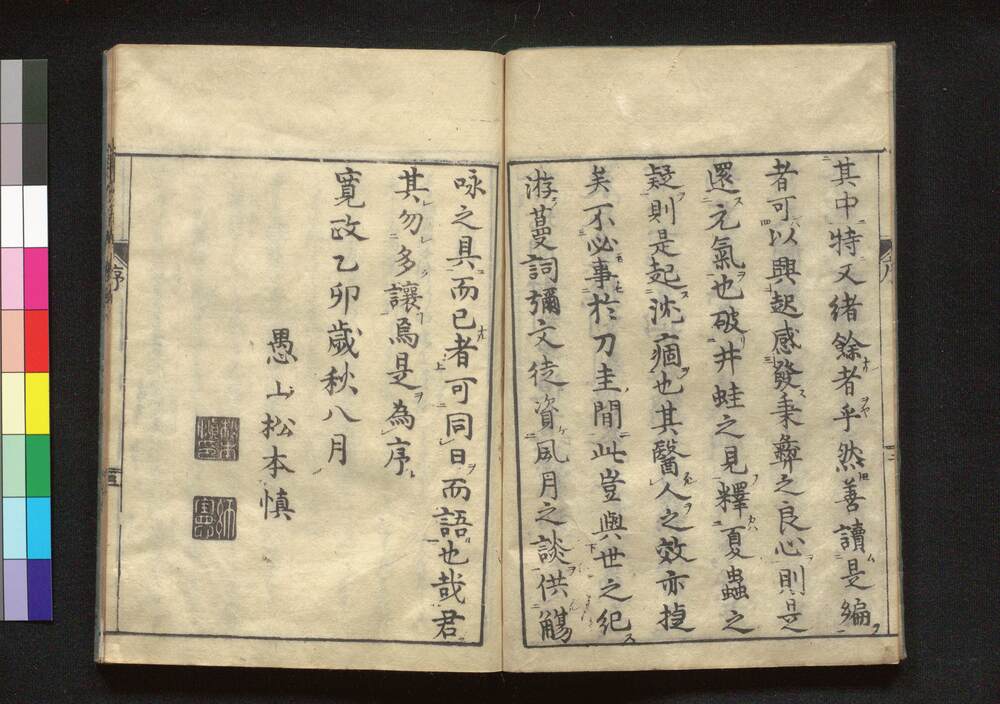 其中特又緒餘者乎然善讀是編
者可以興起感發秉彝之良心則是
還元氣也破井蛙之見釋夏蟲之
疑則是起沈痼也其醫人之效亦捷
矣不必事於刀圭間此豈與世之紀
游蔓詞彌文徒資風月之談供觴
咏之具而已者可同日而語也哉君
其勿多讓焉是為序
寬政乙卯歲秋八月
愚山松本慎
序